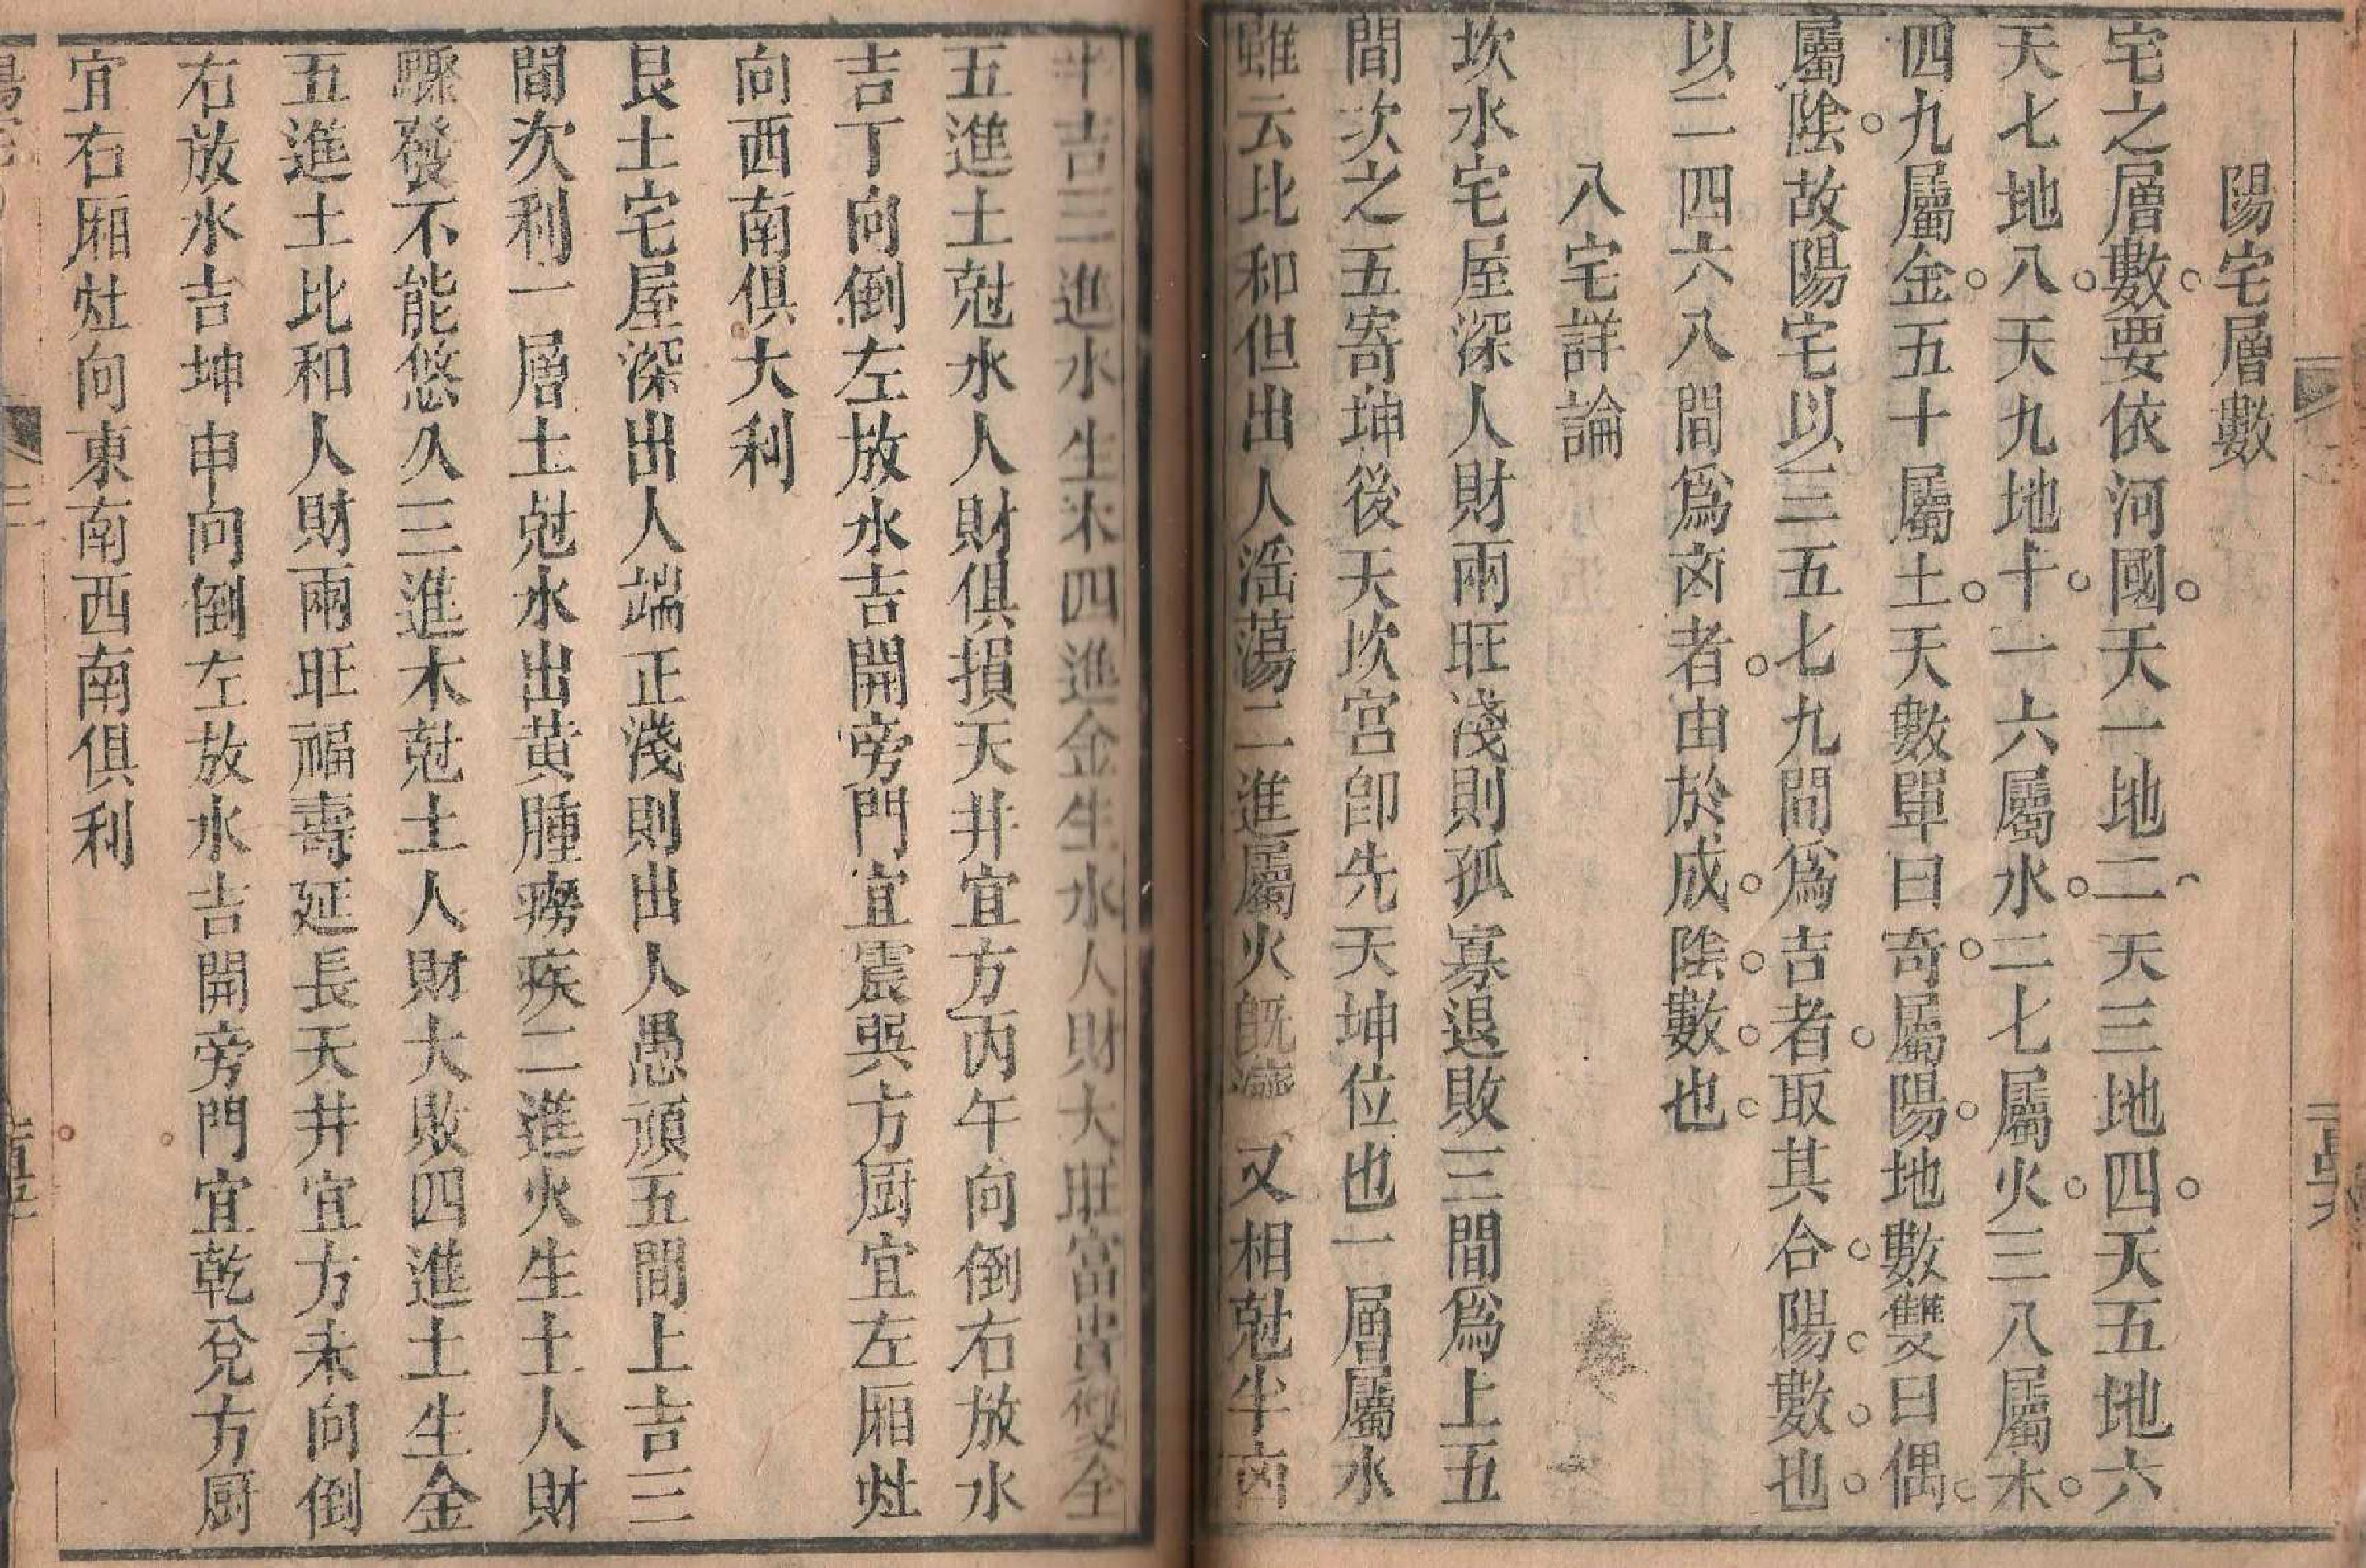 陽宅層數
宅之層數要依河國天一地二天三地四天五地六
天七地八天九地十一六屬水二七屬火三八屬木
四九屬金五十屬土天數單曰奇屬陽地數雙曰偶
屬陰故陽宅以三五七九間爲吉者取其合陽數也
以二四六八間爲凶者由於成陰數也
八宅詳論
坎水宅屋深人財兩旺淺則孤寡退敗三間爲上五
間次之五寄坤後天坎宮卽先天坤位也一層屬水
雖云比和但出人滛蕩二進屬火旣濟又相尅半凶
半吉三進水生木四進金生水人財大旺富貴雙全
五進土尅水人財俱損天井宜方丙午向倒右放水
吉丁向倒左放水吉開旁門宜震巽方厨宜左厢灶
向西南俱大利
艮土宅屋深出人端正淺則出人愚頑五間上吉三
間次利一層土尅水出黄腫癆疾二進火生土人財
驟發不能悠久三進木尅土人財大敗四進土生金
五進土比和人財兩旺福壽延長天井宜方未向倒
右放水吉坤申向倒左放水吉開旁門宜乾兌方厨
宜右厢灶向東南西南俱利